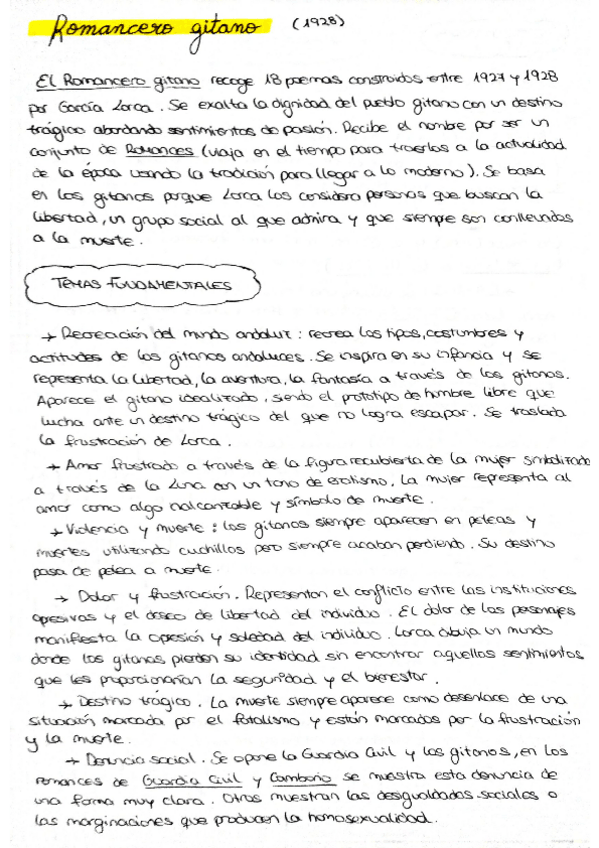 Romancero gitano (1928)
El Romancero gitano recoge 18 poemas construidos entre 1927 y 1928
por García Lorca. Se exalta la dignidad del pueblo gitano con un destino
trágico abordando sentimientos de pasión. Recibe el nombre por ser un
conjunto de Romances (viaja en el tiempo para traerlos a la actualidad
de la época usando la tradición para llegar a lo moderno). Se basa
en los gitanos porque Lorca los considera personas que buscan la
libertad, un grupo social al que admira y que siempre son conllevados
a la muerte.
TEMAS FUNDAMENTALES
→ Recreación del mundo andaluz: recrea los tipos, costumbres y
actitudes de los gitanos andaluces. Se inspira en su infancia y se
representa la libertad, la aventura, la fantasía a través de los gitanos.
Aparece el gitano idealizado, siendo el prototipo de hombre libre que
lucha ante un destino trágico del que no logra escapar. Se traslada
la frustración de Lorca.
→ Amor frustrado a través de la figura recubierta de la mujer simbolizada
a través de la Luna con un tono de erotismo. La mujer representa al
amor como algo inalcanzable y símbolo de muerte.
→ Violencia y muerte: los gitanos siempre aparecen en peleas y
muertes utilizando cuchillos pero siempre acaban perdiendo. Su destino
pasa de pelea a muerte.
→ Dolor y frustración. Representan el conflicto entre las instituciones
opresivas y el deseo de libertad del individuo. El dolor de los personajes
manifiesta la opresión y soledad del individuo. Lorca dibuja un mundo
donde los gitanos pierden su identidad sin encontrar aquellos sentimientos
que les proporcionarían la seguridad y el bienestar.
→ Destino trágico. La muerte siempre aparece como desenlace de una
situación marcada por el fatalismo y están marcados por la frustración
y la muerte.
→ Denuncia social. Se opone la Guardia Civil y los gitanos, en los
romances de Guardia Civil y Camborio se muestra esta denuncia de
una forma muy clara. Otros muestran las desigualdades sociales o
las marginaciones que producen la homosexualidad.